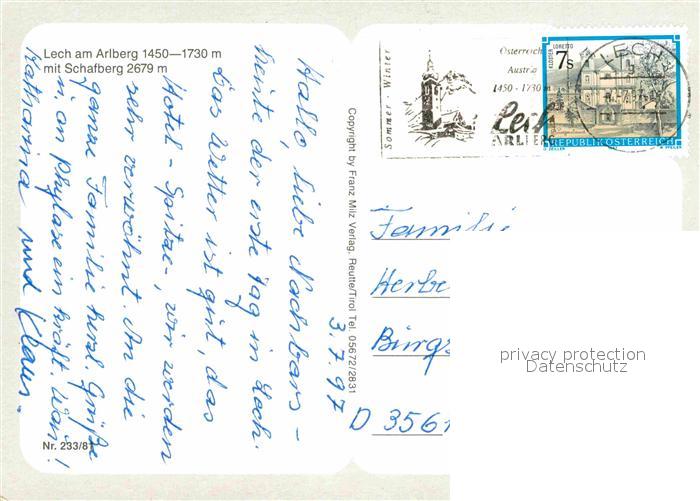 Lech am Arlberg 1450—1730 m
mit Schafberg 2679 m
Hallo, liebe Nachbars -
heute der erste Tag in Lech.
Das Wetter ist gut, das
Hotel - Spitze -, wir werden
sehr verwöhnt. An die
ganze Familie herzl. Grüße
Katharina und Klaus.
3.7.97
Nr. 233/81
Copyright by Franz Milz Verlag, Reutte/Tirol Tel. 05672/2831
Sommer - Winter
Österreich
Austria
1450 - 1730 m
Lech
ARLBERG
KLOSTER LORETTO
7s
REPUBLIK ÖSTERREICH
LECH
Familie
Herbe
Bürgs
D 3561
privacy protection
Datenschutz